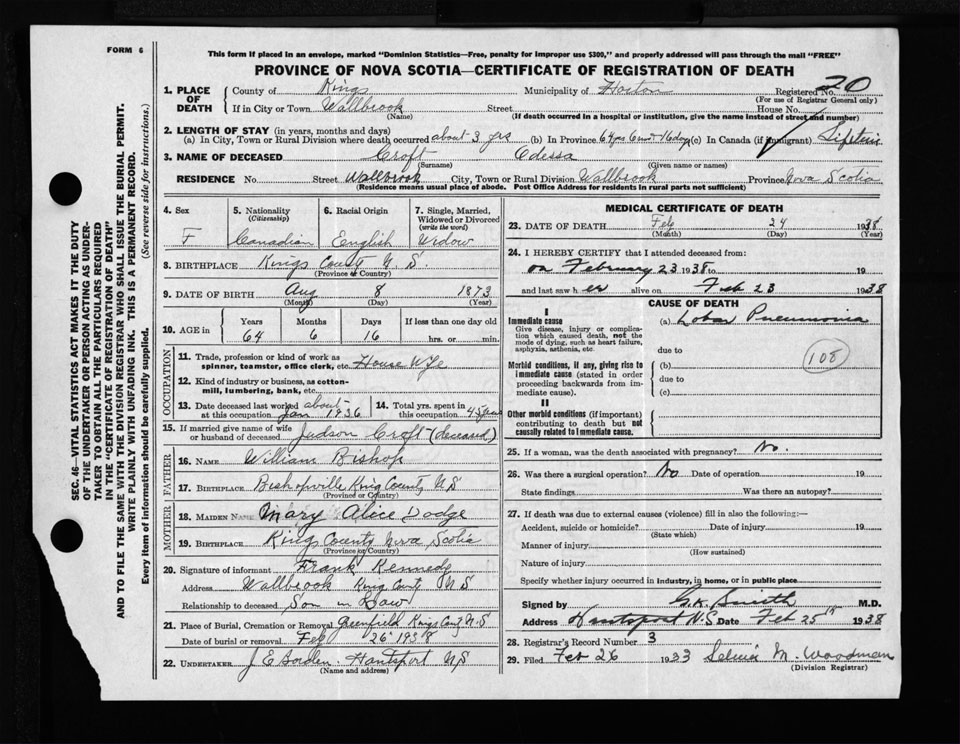 FORM 6
This form if placed in an envelope, marked "Dominion Statistics—Free, penalty for improper use $300," and properly addressed will pass through the mail "FREE"
PROVINCE OF NOVA SCOTIA—CERTIFICATE OF REGISTRATION OF DEATH
SEC. 46—VITAL STATISTICS ACT MAKES IT THE DUTY
OF THE UNDERTAKER OR PERSON ACTING AS UNDER-
TAKER TO OBTAIN ALL THE PARTICULARS REQUIRED
IN THE "CERTIFICATE OF REGISTRATION OF DEATH"
AND TO FILE THE SAME WITH THE DIVISION REGISTRAR WHO SHALL ISSUE THE BURIAL PERMIT.
WRITE PLAINLY WITH UNFADING INK. THIS IS A PERMANENT RECORD.
Every item of information should be carefully supplied. (See reverse side for instructions.)
1. PLACE OF DEATH County of Kings Municipality of Horton Registered No. 20
(For use of Registrar General only)
If in City or Town Wallbrook Street House No.
(Name) (If death occurred in a hospital or institution, give the name instead of street and number)
2. LENGTH OF STAY (in years, months and days)
(a) In City, Town or Rural Division where death occurred about 3 yrs (b) In Province 64 yrs 6 mos 16 days (c) In Canada (if immigrant) Lifetime
3. NAME OF DECEASED Croft Odessa
(Surname) (Given name or names)
RESIDENCE No. Street Wallbrook City, Town or Rural Division Wallbrook Province Nova Scotia
(Residence means usual place of abode. Post Office Address for residents in rural parts not sufficient)
4. Sex 5. Nationality (Citizenship) 6. Racial Origin 7. Single, Married, Widowed or Divorced (write the word)
F Canadian English Widow
8. BIRTHPLACE Kings County N. S.
(Province or Country)
9. DATE OF BIRTH Aug 8 1873
(Month) (Day) (Year)
10. AGE in Years Months Days If less than one day old
64 6 16 hrs. or min.
OCCUPATION
11. Trade, profession or kind of work as spinner, teamster, office clerk, etc. House Wife
12. Kind of industry or business, as cotton-mill, lumbering, bank, etc.
13. Date deceased last worked at this occupation about Jan 1936 14. Total yrs. spent in this occupation 45 yrs
15. If married give name of wife or husband of deceased Judson Croft (deceased)
FATHER
16. NAME William Bishop
17. BIRTHPLACE Bishopville King County N S
(Province or Country)
MOTHER
18. MAIDEN NAME Mary Alice Dodge
19. BIRTHPLACE King County Nova Scotia
(Province or Country)
20. Signature of informant Frank Kennedy
Address Wallbrook King County N S
Relationship to deceased Son in Law
21. Place of Burial, Cremation or Removal Greenfield Kings County N.S
Date of burial or removal Feb 26 1938
22. UNDERTAKER J E Borden Hantsport N S
(Name and address)
MEDICAL CERTIFICATE OF DEATH
23. DATE OF DEATH Feb 24 1938
(Month) (Day) (Year)
24. I HEREBY CERTIFY that I attended deceased from:
on February 23 1938 to 19
and last saw h er alive on Feb 23 1938
CAUSE OF DEATH
I
Immediate cause (a) Lobar Pneumonia
Give disease, injury or complication which caused death, not the mode of dying, such as heart failure, asphyxia, asthenia, etc.
due to
108
Morbid conditions, if any, giving rise to immediate cause (stated in order proceeding backwards from immediate cause).
(b)
due to
(c)
II
Other morbid conditions (if important) contributing to death but not causally related to immediate cause.
25. If a woman, was the death associated with pregnancy? No.
26. Was there a surgical operation? No Date of operation 19
State findings Was there an autopsy?
27. If death was due to external causes (violence) fill in also the following:—
Accident, suicide or homicide? Date of injury 19
(State which)
Manner of injury
(How sustained)
Nature of injury
Specify whether injury occurred in industry, in home, or in public place
Signed by G. K. Smith M.D.
Address Hantsport N.S. Date Feb 25th 1938
28. Registrar's Record Number 3
29. Filed Feb 26 1933 Selina M. Woodman
(Division Registrar)